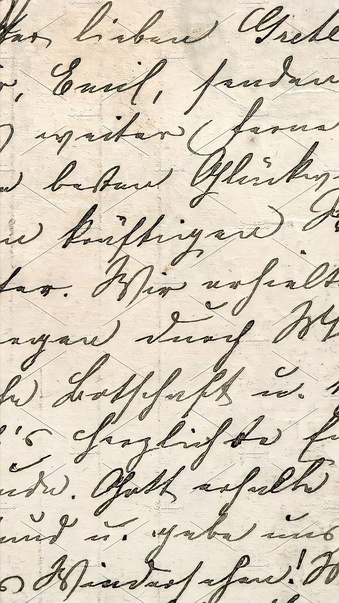 lieben Grete
Emil, senden
weiter (ferne
besten Glückw
kräftigen
ter. Wir erhielt
durch
Botschaft u.
's herzlichste
Gott erhalte
und u. gebe uns
Wiedersehen!